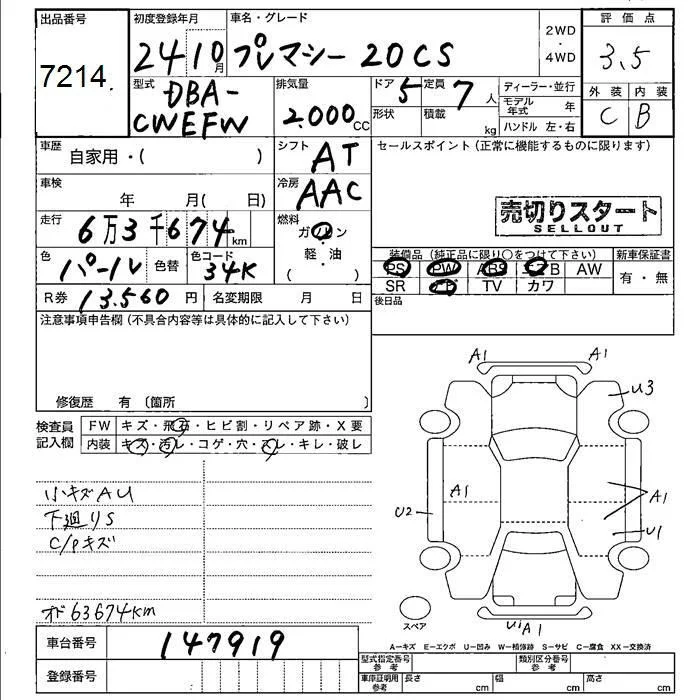 出品番号 初度登録年月 車名・グレード 2WD・4WD 評価点
7214. 24 10月 プレマシー 20CS 3.5
型式 排気量 ドア 定員 ディーラー・並行 外装 内装
DBA-CWEFW 2.000CC 5 7人 モデル年式 年 C B
形状 積載 kg ハンドル 左・右
車歴 シフト セールスポイント(正常に機能するものに限ります)
自家用・( ) AT
車検 冷房
年 月( 日) AAC
売切りスタート
SELLOUT
走行 燃料
6万3千674km ガソリン
色 色替 色コード 軽・油
パール 34K ( )
装備品(純正品に限り○をつけて下さい) 新車保証書
PS PW ABS エアB AW 有・無
SR ナビ TV カワ
R券 13.560円 名変期限 月 日 後日品
注意事項申告欄(不具合内容等は具体的に記入して下さい)
修復歴 有 〔箇所 〕
検査員記入欄 FW キズ・飛石・ヒビ割・リペア跡・X要
内装 キズ・汚レ・コゲ・穴・スレ・キレ・破レ
小キズAU
下廻りS
C/Pキズ
オド63674Km
A1 A1
U3
A1 A1
U2 U1
スペア U1 A1
A—キズ E—エクボ U—凹み W—補修跡 S—サビ C—腐食 XX—交換済
車台番号 147919
登録番号
型式指定番号参考 類別区分番号参考
車庫証明用参考 長さ cm 幅 cm 高さ cm